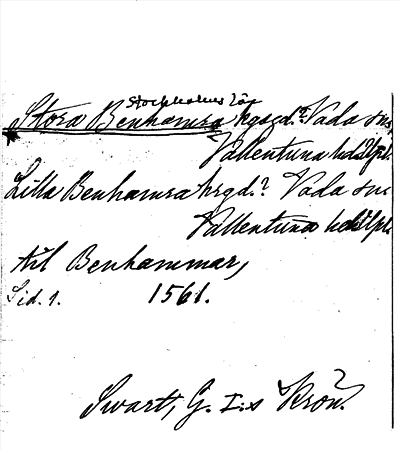 Stockholms län
Stora Benhamra hgsgd.? Vada sn,
Vallentuna hds Upl.
Lilla Benhamra hrgd.? Vada sn
Vallentuna hds Upl.
till Benhammar,
Sid. 1. 1561.
Swart, G. I:s Krön.